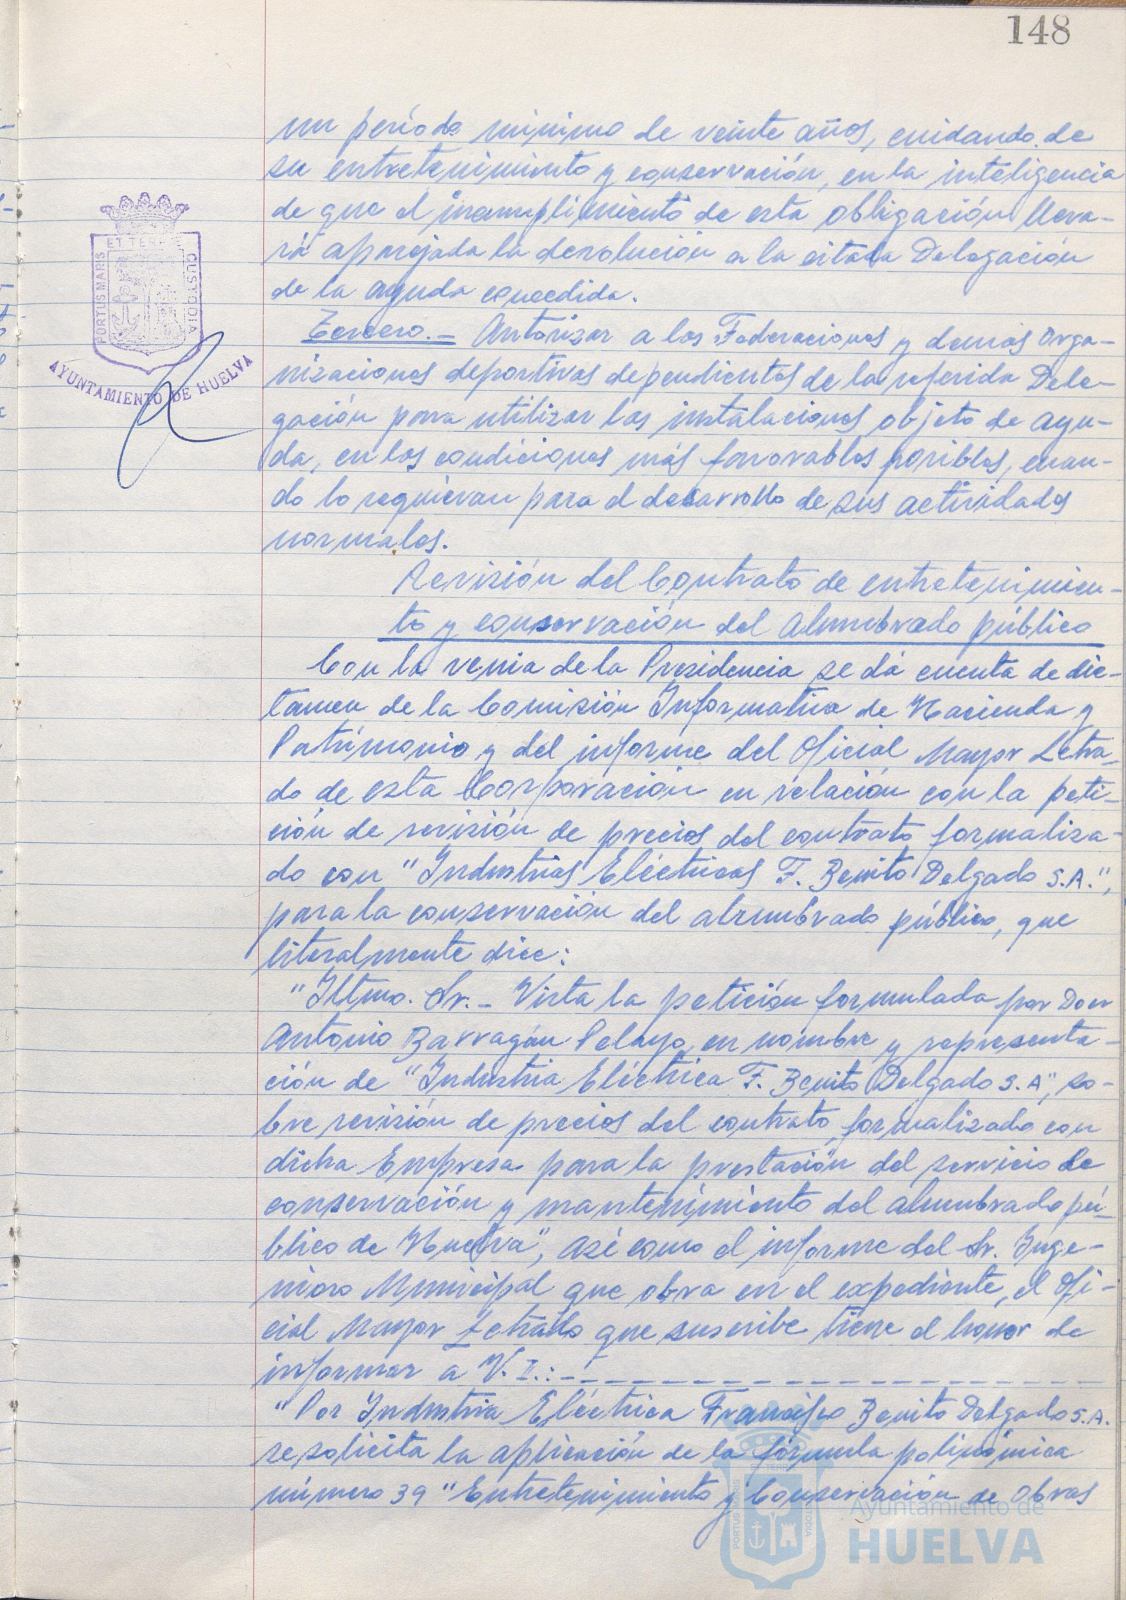 148
un período mínimo de veinte años, cuidando de
su entretenimiento y conservación, en la inteligencia
de que el incumplimiento de esta obligación lleva-
rá aparejada la devolución a la citada Delegación
de la ayuda concedida.
Tercero.- Autorizar a las Federaciones y demás Orga-
nizaciones deportivas dependientes de la referida Dele-
gación para utilizar las instalaciones objeto de ayu-
da, en las condiciones más favorables posibles, cuan-
do lo requieran para el desarrollo de sus actividades
normales.
Revisión del Contrato de entretenimien-
to y conservación del alumbrado público
Con la venia de la Presidencia se dá cuenta de dic-
tamen de la Comisión Informativa de Hacienda y
Patrimonio y del informe del Oficial Mayor Letra-
do de esta Corporación en relación con la peti-
ción de revisión de precios del contrato formaliza-
do con "Industrias Eléctricas F. Benito Delgado S.A.",
para la conservación del alumbrado público, que
literalmente dice:
"Iltmo. Sr.- Vista la petición formulada por Don
Antonio Barragán Pelayo, en nombre y representa-
ción de "Industria Eléctrica F. Benito Delgado S.A", so-
bre revisión de precios del contrato formalizado con
dicha Empresa para la prestación del servicio de
conservación y mantenimiento del alumbrado pú-
blico de Huelva", así como el informe del Sr. Inge-
niero Municipal que obra en el expediente, el Ofi-
cial Mayor Letrado que suscribe tiene el honor de
informar a V.I.:-
"Por Industria Eléctrica Francisco Benito Delgado S.A.
se solicita la aplicación de la fórmula polinómica
número 39 "Entretenimiento y Conservación de Obras
PORTUS MARIS ET TERRAE CUSTODIA
AYUNTAMIENTO DE HUELVA
Ayuntamiento de
HUELVA